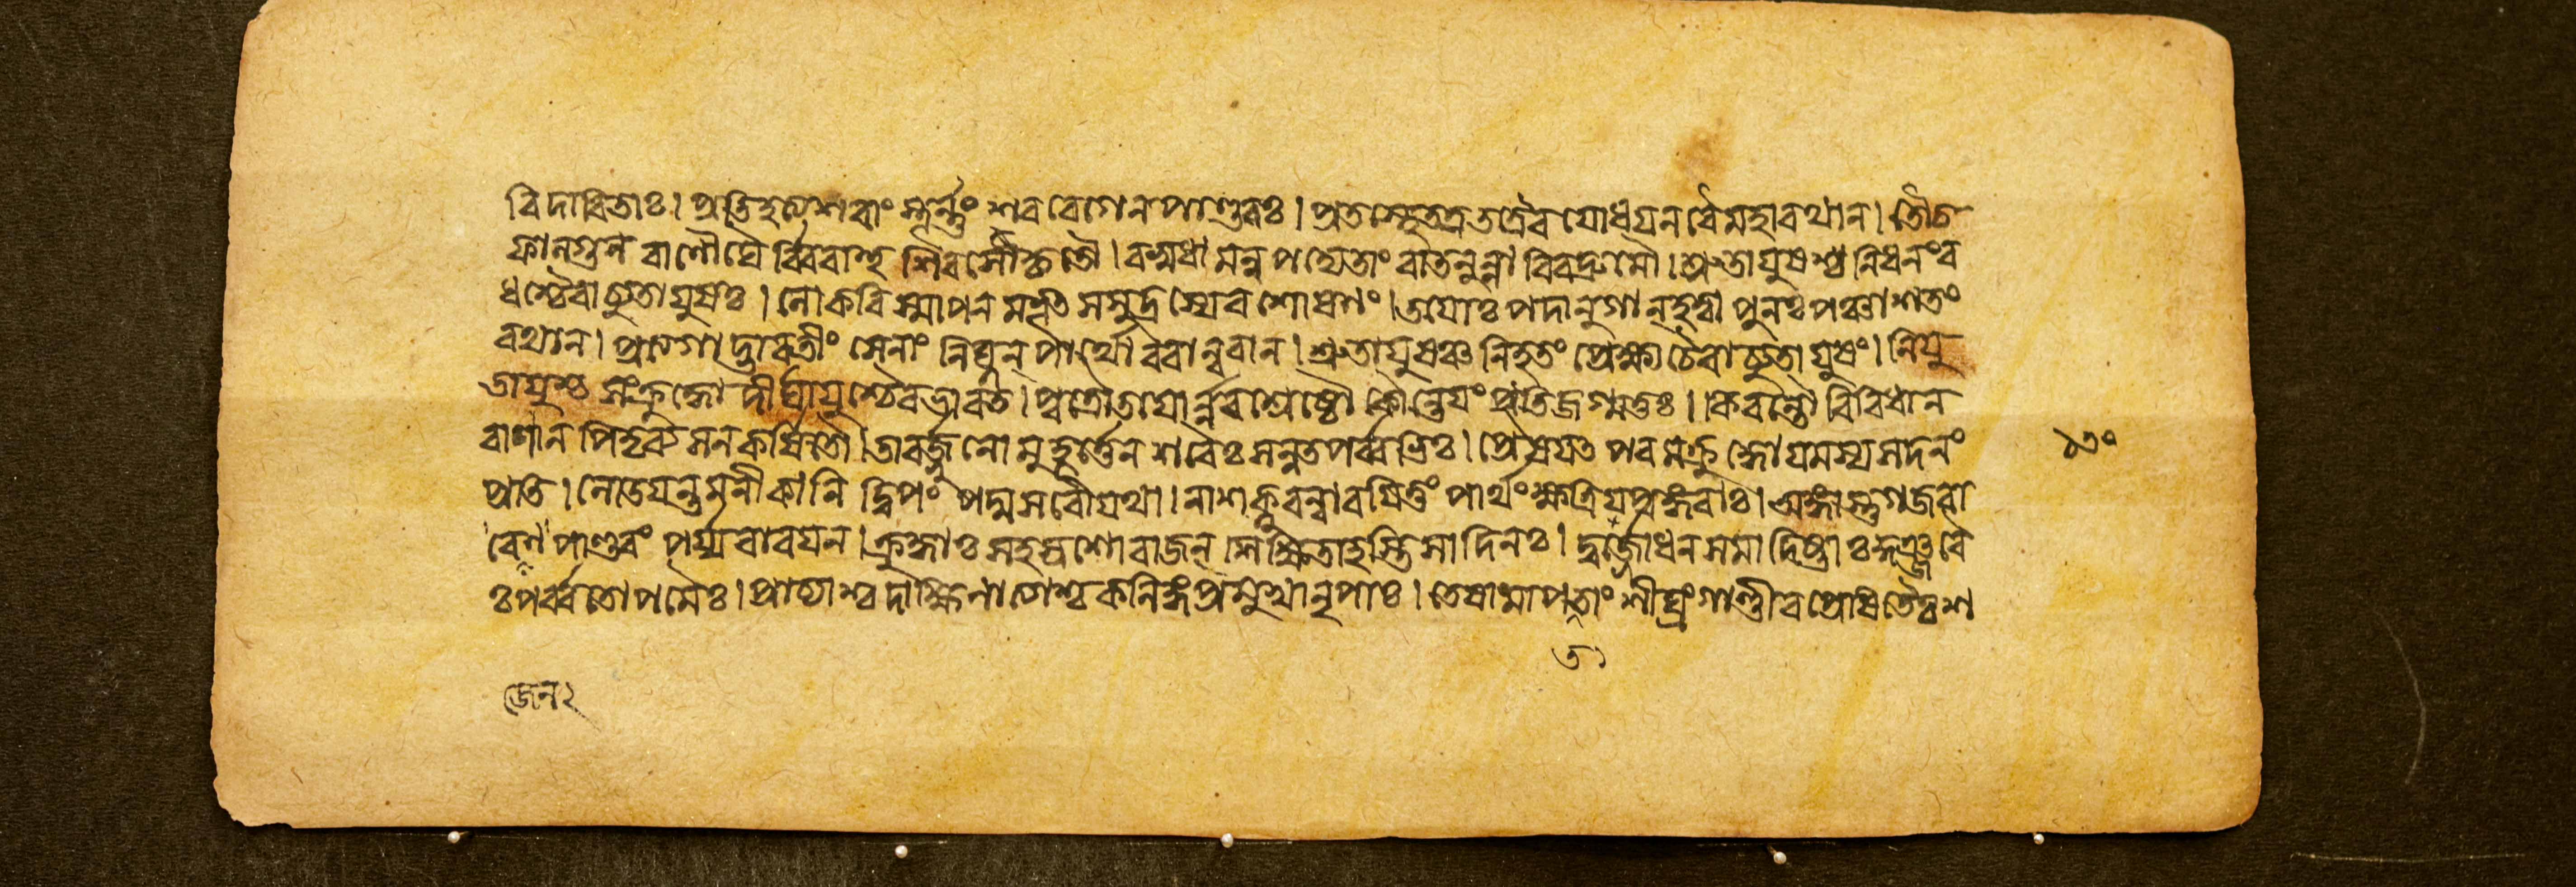 বিদারিতাঃ। প্রতিহত্যশরাংস্তূর্ন্নং শর বেগেন পাণ্ডবঃ। প্রতস্থেতত্র তত্রৈব যোধয়ন বৈ মহারথান। তৌচ
ফাল্গুন বাণৌঘৈ র্ব্বিবাহু শিরসৌকৃতৌ। বসুধা মন্বপদ্যেতাং বাতনুন্না বিবদ্রুমৌ। শ্রুতায়ুষশ্চ নিধনংব
ধশ্চৈবাচ্যুতায়ুষঃ। লোকবিস্মাপন মভূৎ সমুদ্রস্যেব শোষণং। তয়োঃ পদানুগান্ হত্বা পুনঃ পঞ্চাশতং
রথান। প্রত্যগা দ্ভারতীং সেনাং নিঘ্নন্ পার্থো বরান্বরান। শ্রুতায়ুষঞ্চ নিহতং প্রেক্ষ্য চৈবাচ্যুতায়ুষং। নিয়ু
তায়ুশ্চ সংক্রুদ্ধো দীর্ঘায়ুশ্চৈবভারত। পুত্রৌতয়োর্ন্নরশ্রেষ্ঠৌ কৌন্তেয়ং প্রতিজগ্মতুঃ। কিরন্তৌ বিবিধান
বাণান পিতৃব্যসনকর্ষিতৌ। তাবর্জ্জুনো মুহূর্ত্তেন শরৈঃ সন্নতপর্ব্বভিঃ। প্রেষয়ৎ পরমক্রুদ্ধো যমস্য সদনং
প্রতি। লোডয়ন্তমনীকানি দ্বিপং পদ্মসরোযথা। নাশক্নুবন্বারয়িতুং পার্থং ক্ষত্রিয়পুঙ্গবাঃ। অঙ্গাস্তুগজবা
রেণ পাণ্ডবং পর্য্যবারয়ন। ক্রুদ্ধাঃ সহস্রশো রাজন্ শিক্ষিতাহস্তিসাদিনঃ। দুর্জ্জোধনসমাদিষ্টাঃ কুঞ্জরৈ
ঃপর্ব্বতোপমৈঃ। প্রাচ্যাশ্চ দাক্ষিনাত্যেশ্চ কলিঙ্গপ্রমুখা নৃপাঃ। তেষামাপততাং শীঘ্রং গাণ্ডীব প্রেষিতৈঃশ
১৩০
ত১
জেন২